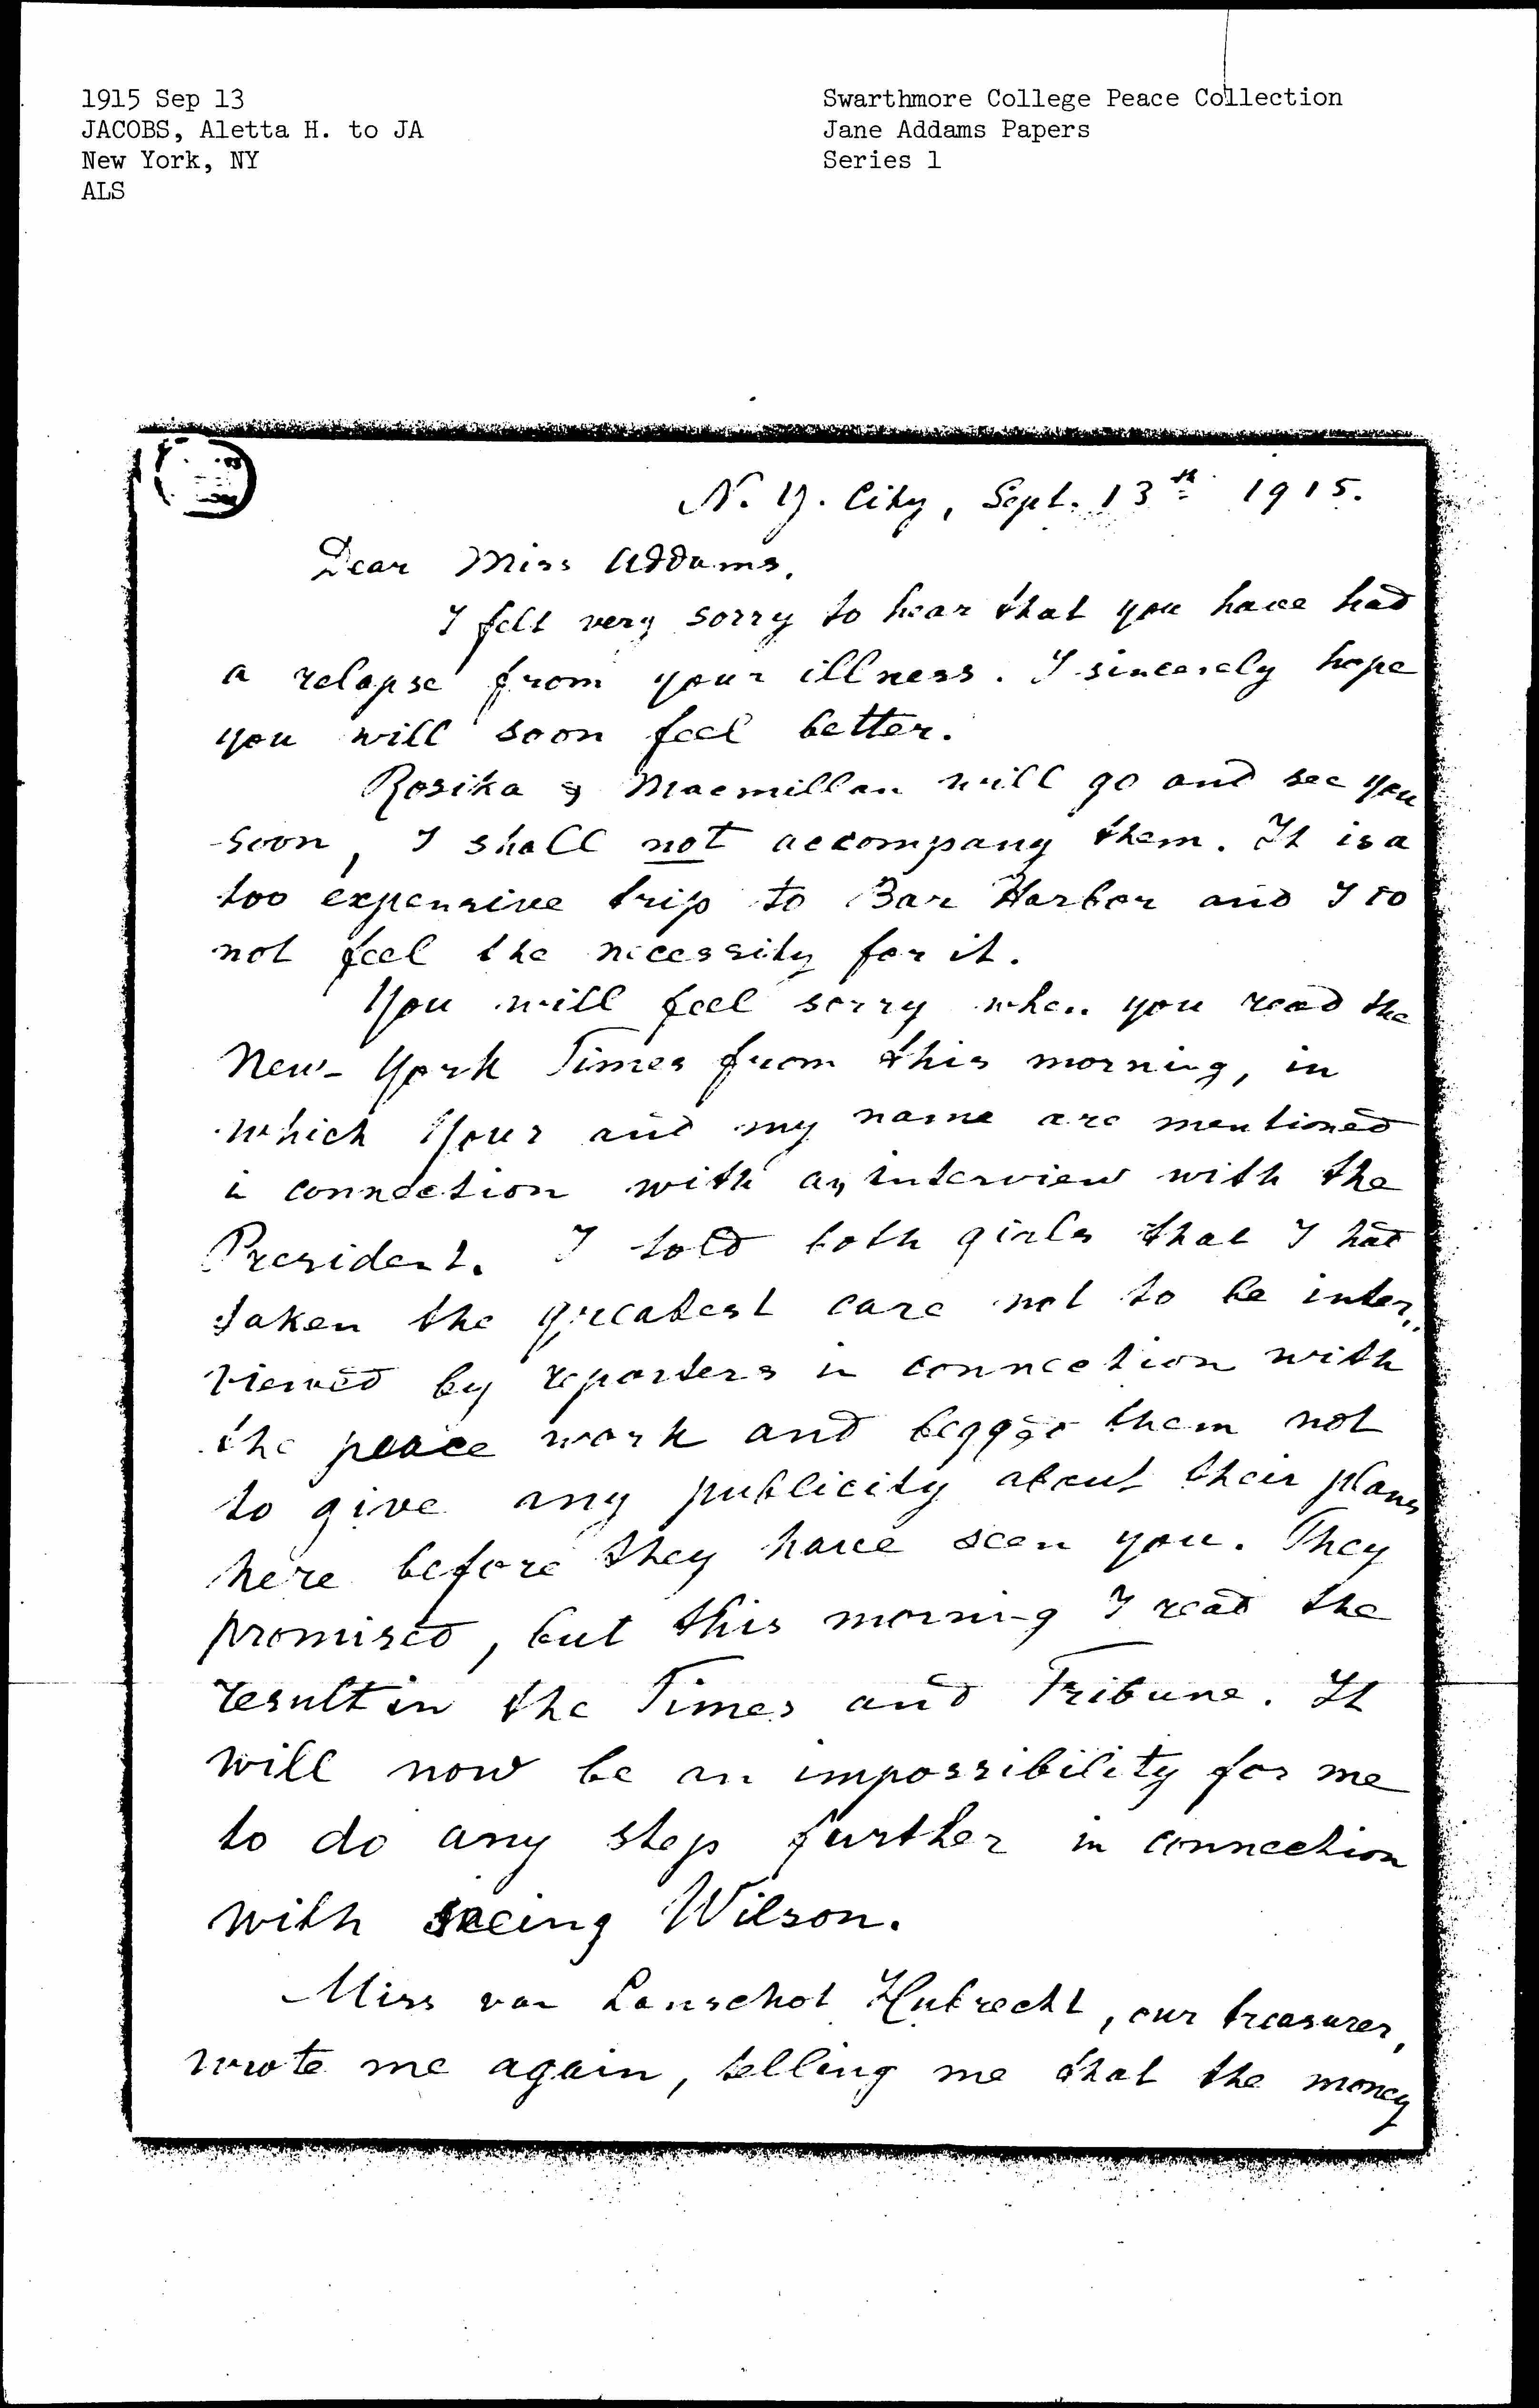 1915 Sep 13
JACOBS, Aletta H. to JA
New York, NY
ALS
Swarthmore College Peace Collection
Jane Addams Papers
Series 1
N. Y. City, Sept. 13th 1915.
Dear Miss Addams,
I felt very sorry to hear that you have had
a relapse from your illness. I sincerely hope
you will soon feel better.
Rosika & Macmillan will go and see you
soon, I shall not accompany them. It is a
too expensive trip to Bar Harbor and I do
not feel the necessity for it.
You will feel sorry when you read the
New-York Times from this morning, in
which Your and my name are mentioned
in connection with an interview with the
President. I told both girls that I had
taken the greatest care not to be inter-
viewed by reporters in connection with
the peace work and begged them not
to give any publicity about their plans
here before they have seen you. They
promised, but this morning I read the
result in the Times and Tribune. It
will now be an impossibility for me
to do any step further in connection
with seeing Wilson.
Miss van Lanschot Hubrecht, our treasurer,
wrote me again, telling me that the money